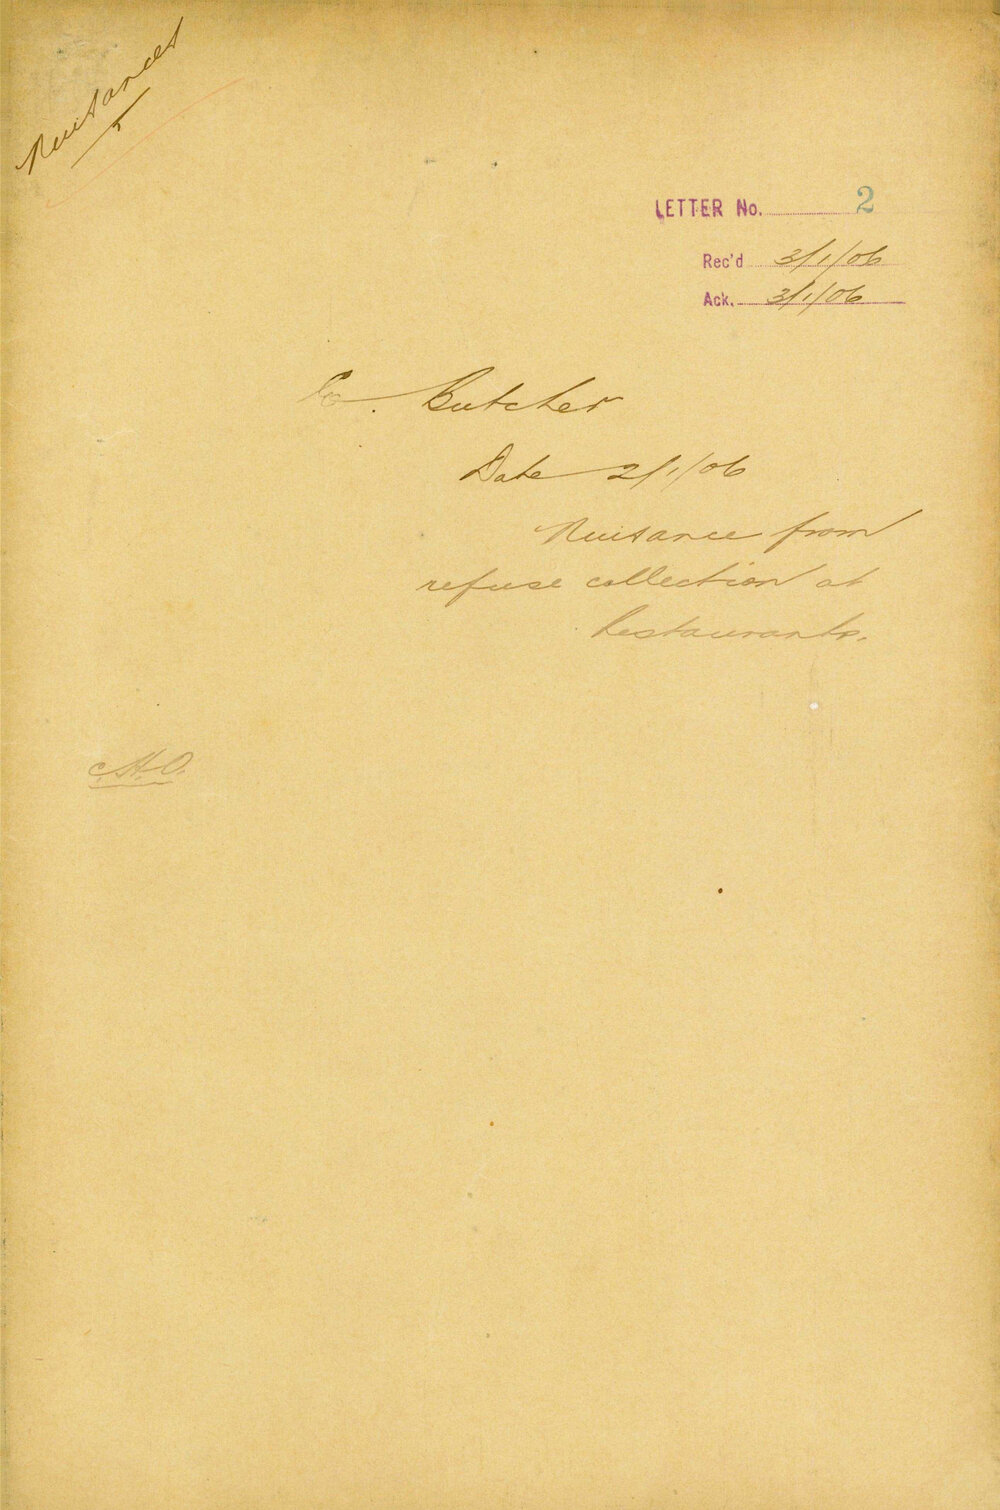 Nuisances
LETTER No. 2
Rec'd 3/1/06
Ack. 3/1/06
Butcher
Date 2/1/06
Nuisance from
refuse collection at
Restaurants.